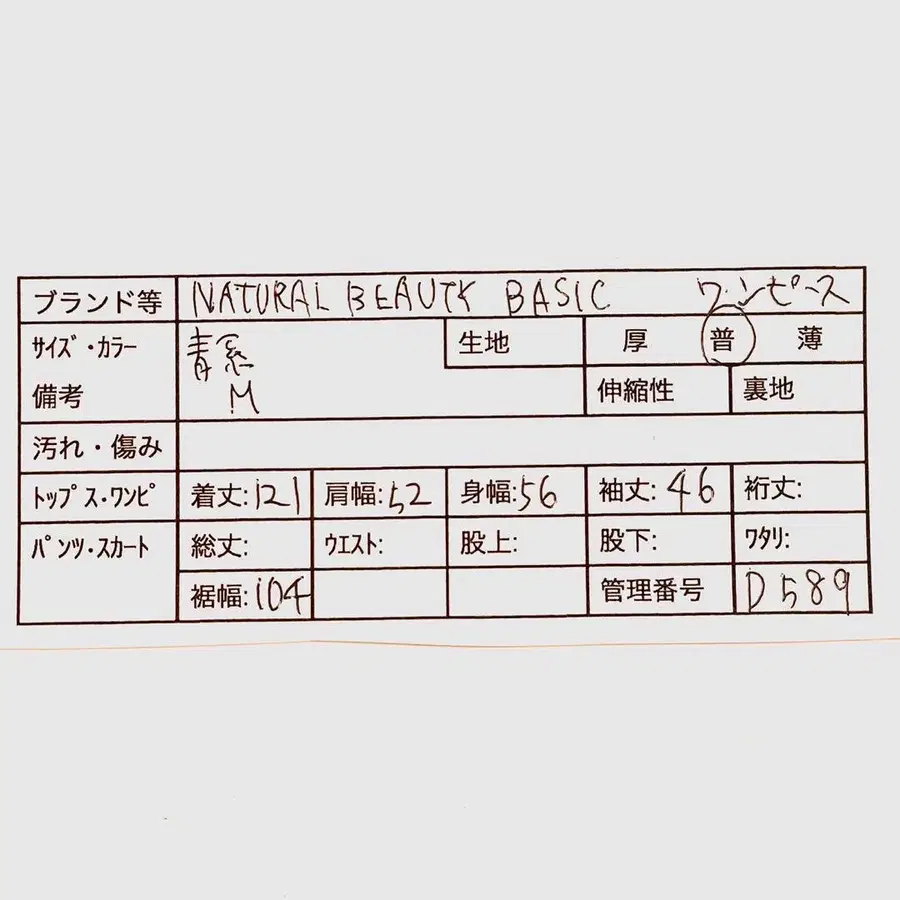 ブランド等 NATURAL BEAUTY BASIC ワンピース
サイズ・カラー 青系 生地 厚 普 薄
備考 M 伸縮性 裏地
汚れ・傷み
トップス・ワンピ 着丈:121 肩幅:52 身幅:56 袖丈:46 裄丈:
パンツ・スカート 総丈: ウエスト: 股上: 股下: ワタリ:
裾幅:104 管理番号 D589